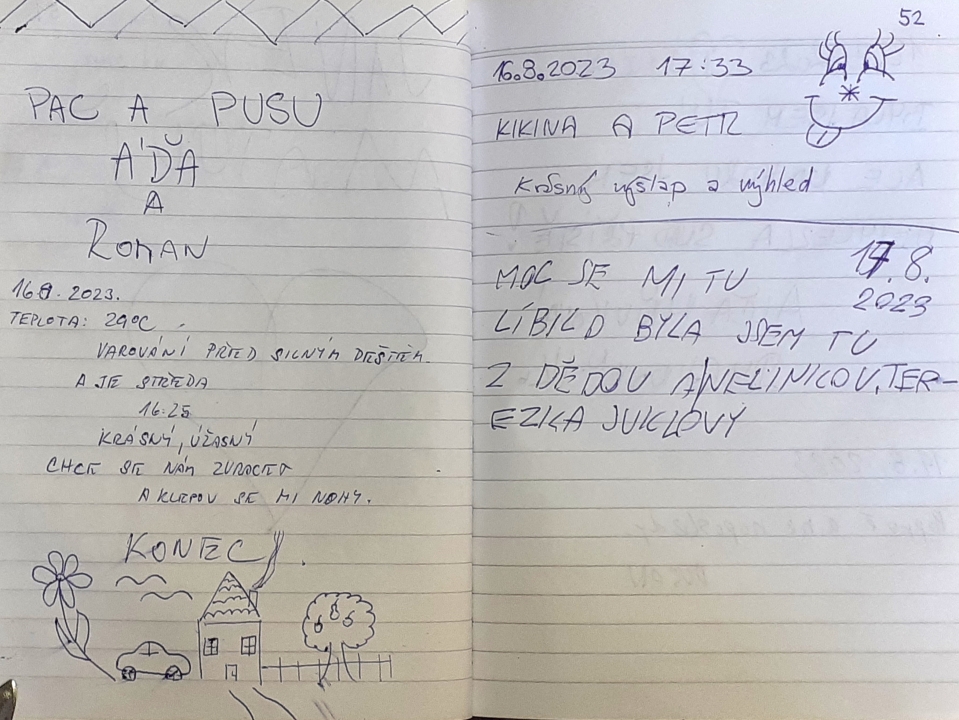 PAC A PUSU
AĎA
A
ROMAN
16.8.2023.
TEPLOTA: 29°C
VAROVÁNÍ PŘED SILNÝM DEŠTĚM.
A JE STŘEDA
16:25
KRÁSNÝ, ÚŽASNÝ
CHCE SE NÁM ZVRACET
A KLEPOU SE MI NOHY.
KONEC
52
16.8.2023 17:33
KIKINA A PETR
Krásný výšlap a výhled
17.8.
2023
MOC SE MI TU
LÍBILO BYLA JSEM TU
Z DĚDOU A NELINKOU, TER-
EZKA JUKLOVÝ